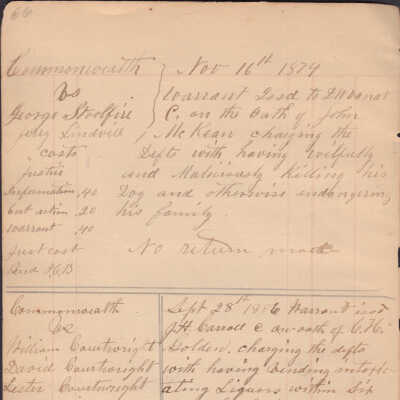 66
Commonwealth } Nov 16th 1879
Vs Warrant Issd to
George Stoolfire C. on the Oath of John
McKean charging the
costs Defts with having wilfully
Justice and Maliciously killing his
Information .40 Dog and otherwise endangering
Ent action .20 his family
Warrant .40
Just cost No return made
Commonwealth Sept 28th Warrant issd
Vs J H Carroll C on oath of
William Courtwright Golden charging the defts
David Courtwright with having
Lester Courtwright ating Liquors within Six